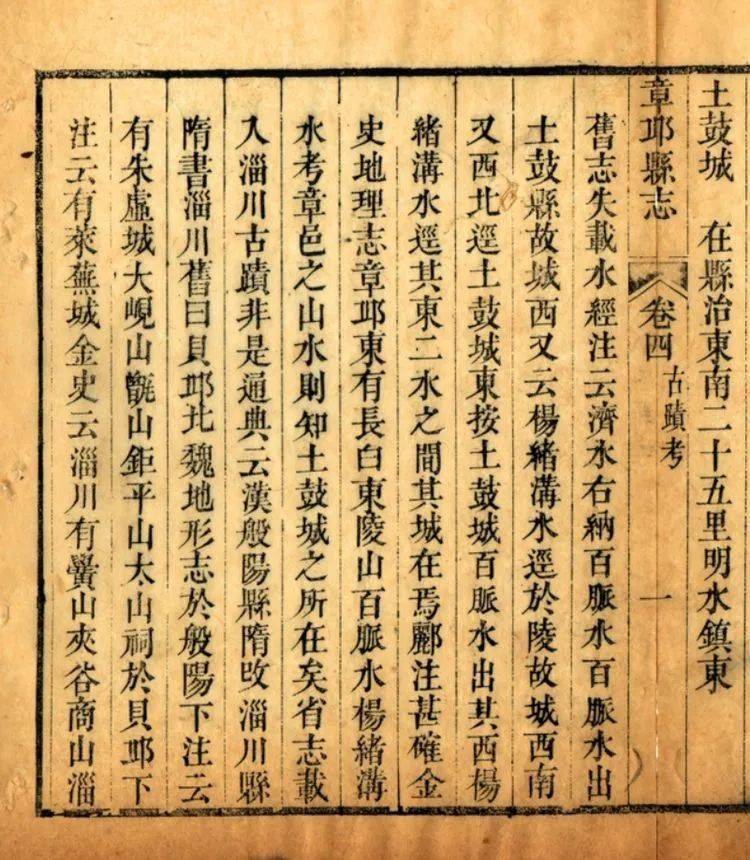 土鼓城　在縣治東南二十五里明水鎮東
章邱縣志　卷四　古蹟考　一
舊志失載水經注云濟水右納百脈水百脈水出
土鼓縣故城西又云楊緒溝水逕於陵故城西南
又西北逕土鼓城東按土鼓城百脈水出其西楊
緒溝水逕其東二水之間其城在焉酈注甚確金
史地理志章邱東有長白東陵山百脈水楊緒溝
水考章邑之山水則知土鼓城之所在矣省志載
入淄川古蹟非是通典云漢般陽縣隋改淄川縣
隋書淄川舊曰貝邱北魏地形志於般陽下注云
有朱虛城大峴山甗山鉅平山太山祠於貝邱下
注云有萊蕪城金史云淄川有黌山夾谷商山淄